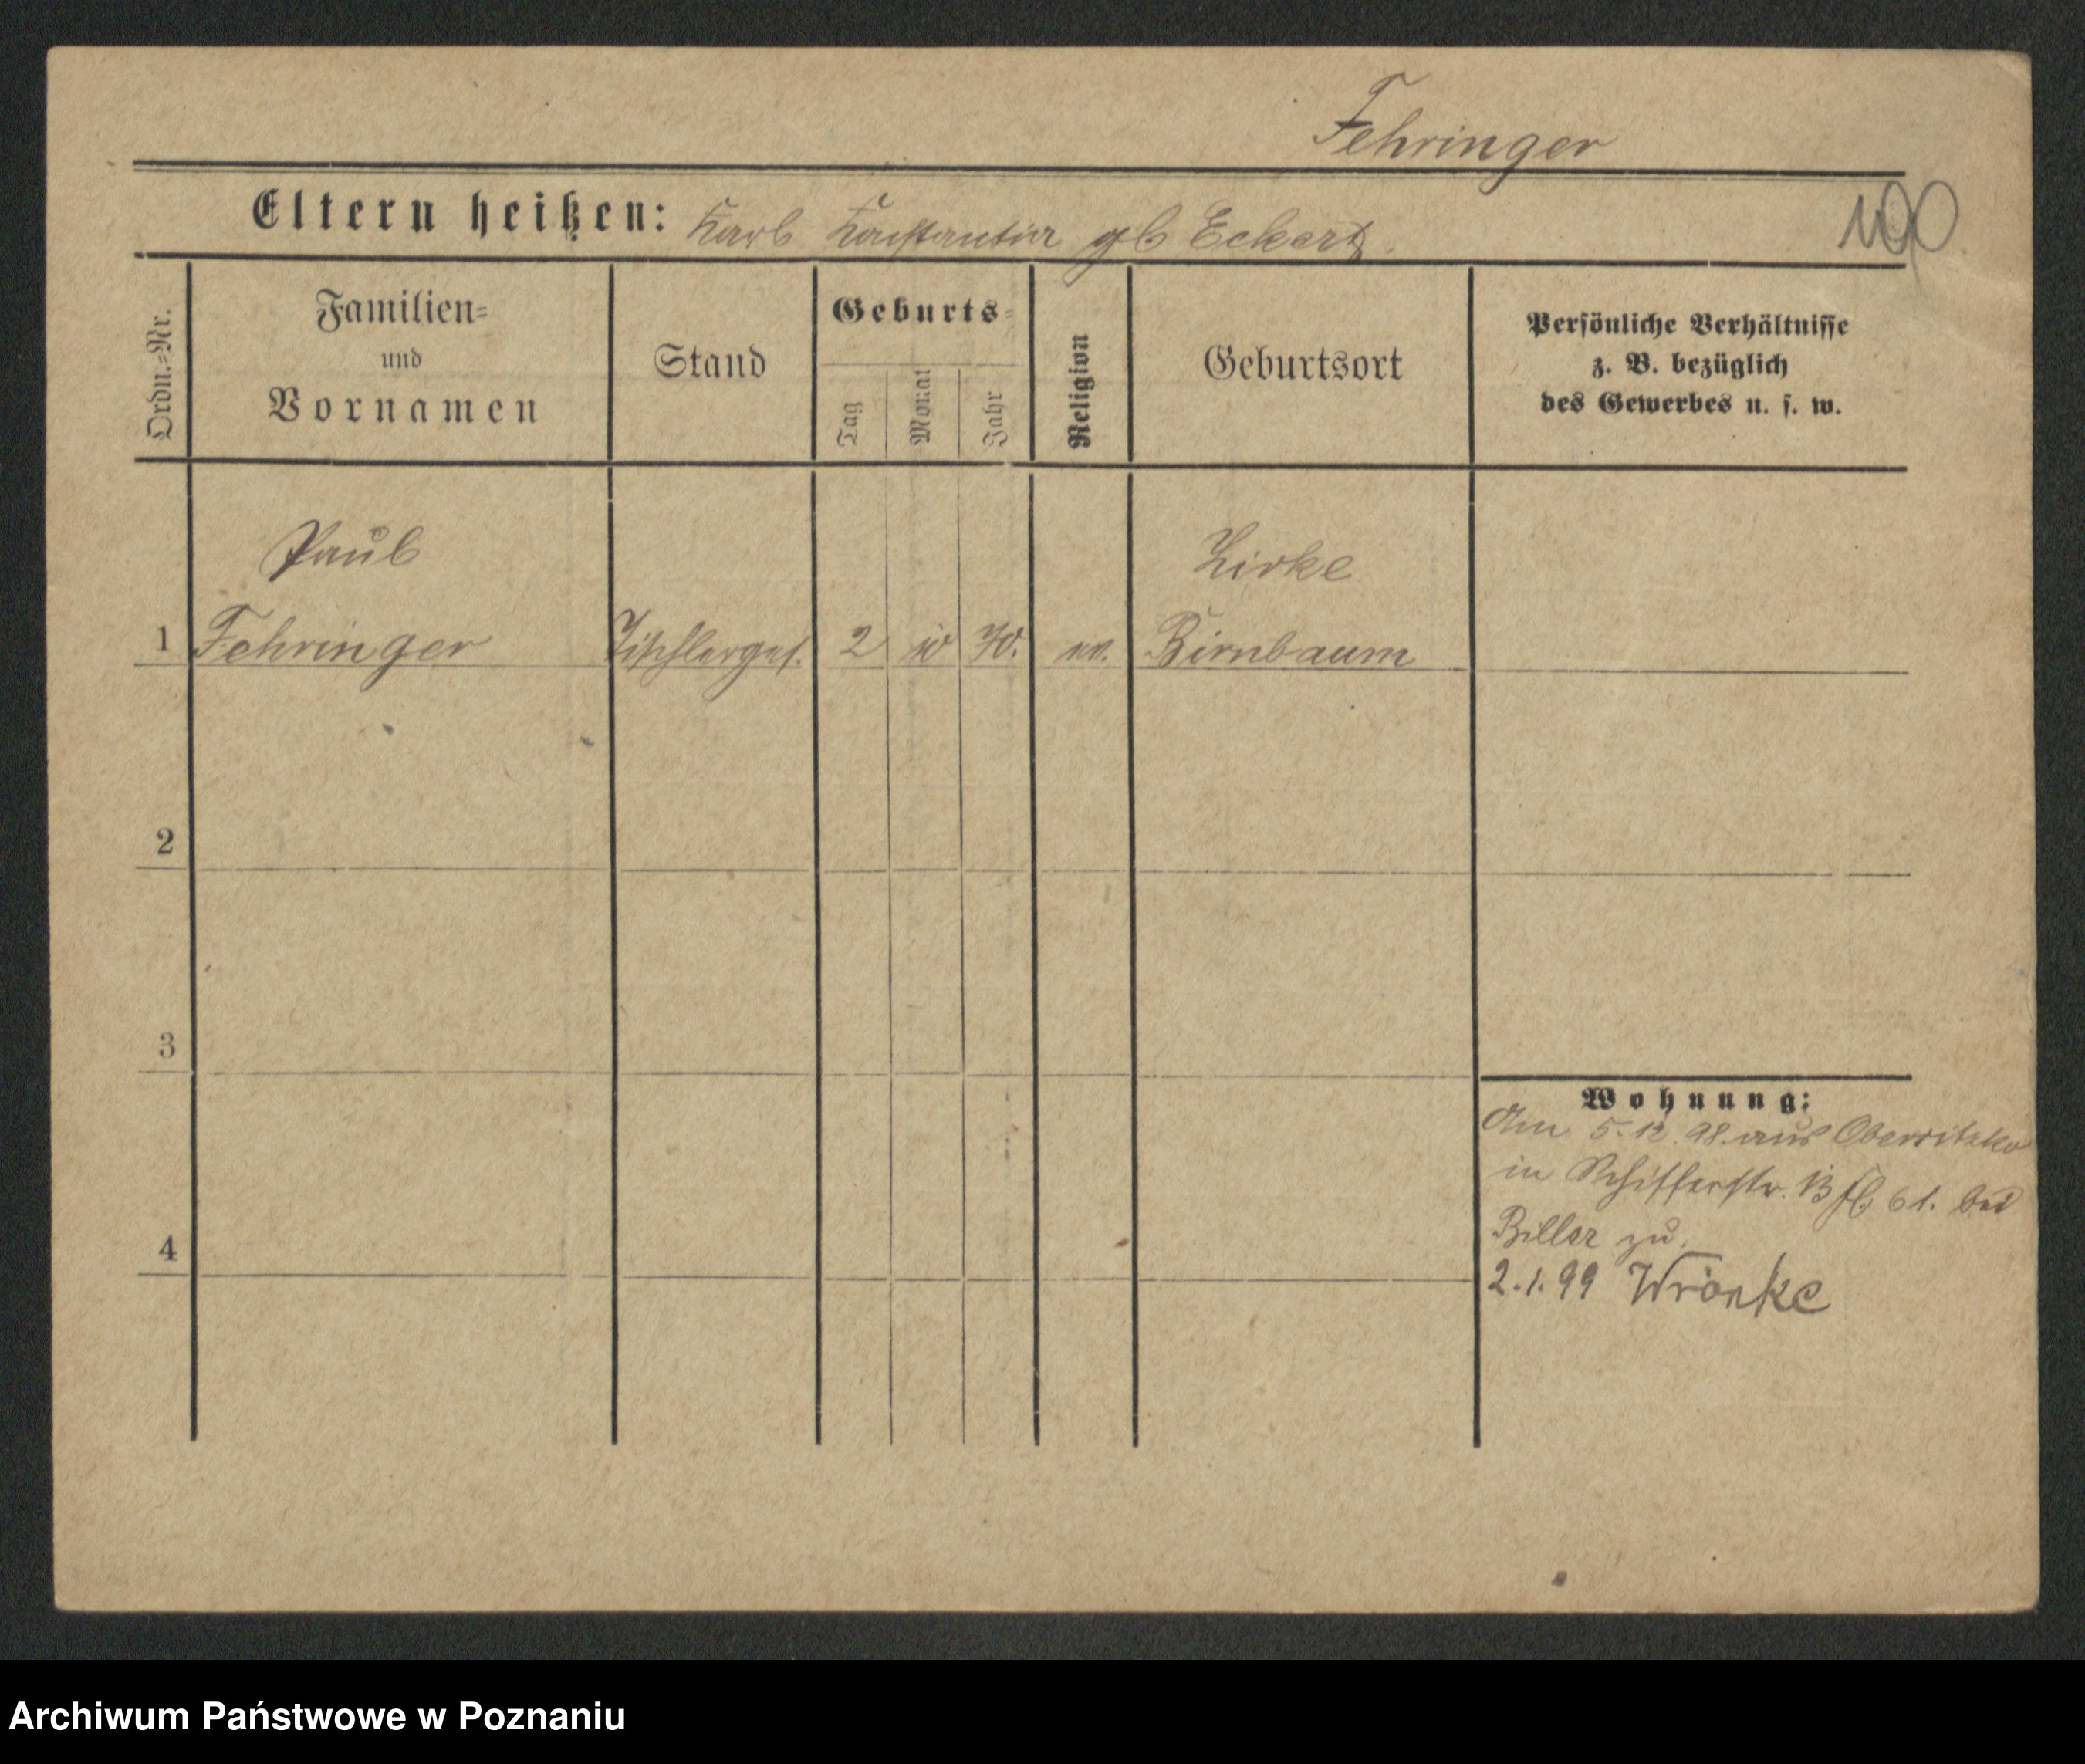 Fehringer
Eltern heißen: Karl Konstantia gb Eckert.
100
Ordn.=Nr.
Familien=
und
Vornamen
Stand
Geburts=
Tag
Monat
Jahr
Religion
Geburtsort
Persönliche Verhältnisse
z. B. bezüglich
des Gewerbes u. s. w.
Paul
Zirke
1 Fehringer Tischlerges. 2 10 70. ev. Birnbaum
2
3
4
Wohnung:
Am 5.12.98. aus Obersitzko
in Schifferstr. 13 61. bei
Biller zu.
2.1.99 Wronke
Archiwum Państwowe w Poznaniu